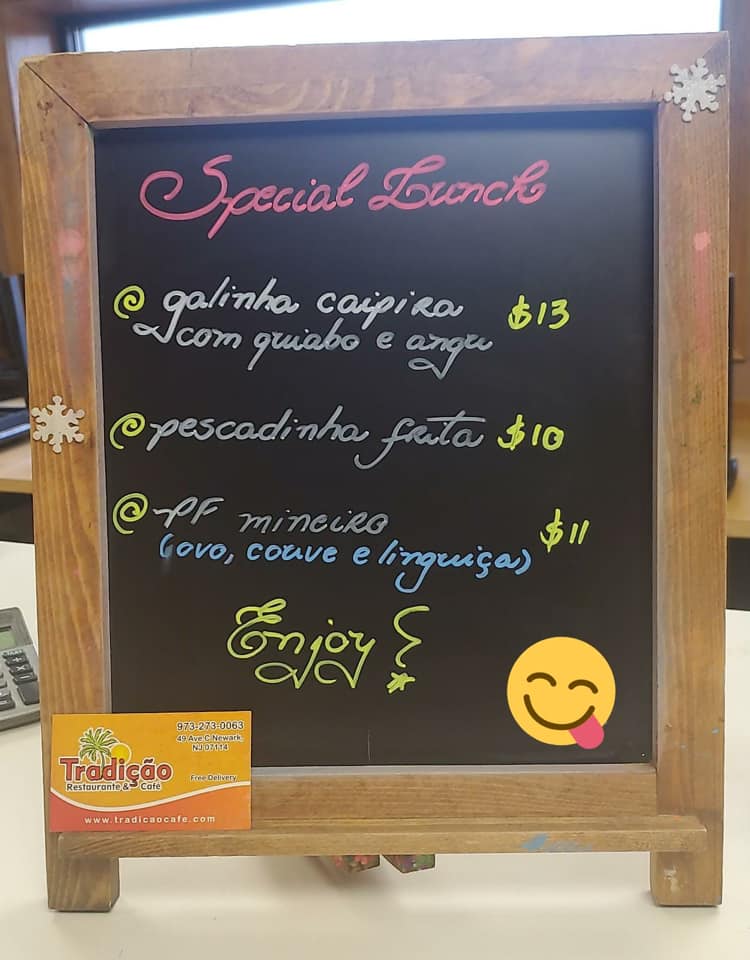 Special Lunch
@ galinha caipira $13
com quiabo e angu
@ pescadinha frita $10
@ PF mineiro $11
(ovo, couve e linguiça)
Enjoy!
973-273-0063
49 Ave C Newark,
NJ 07114
Tradição
Restaurante & Café
Free Delivery
www.tradicaocafe.com